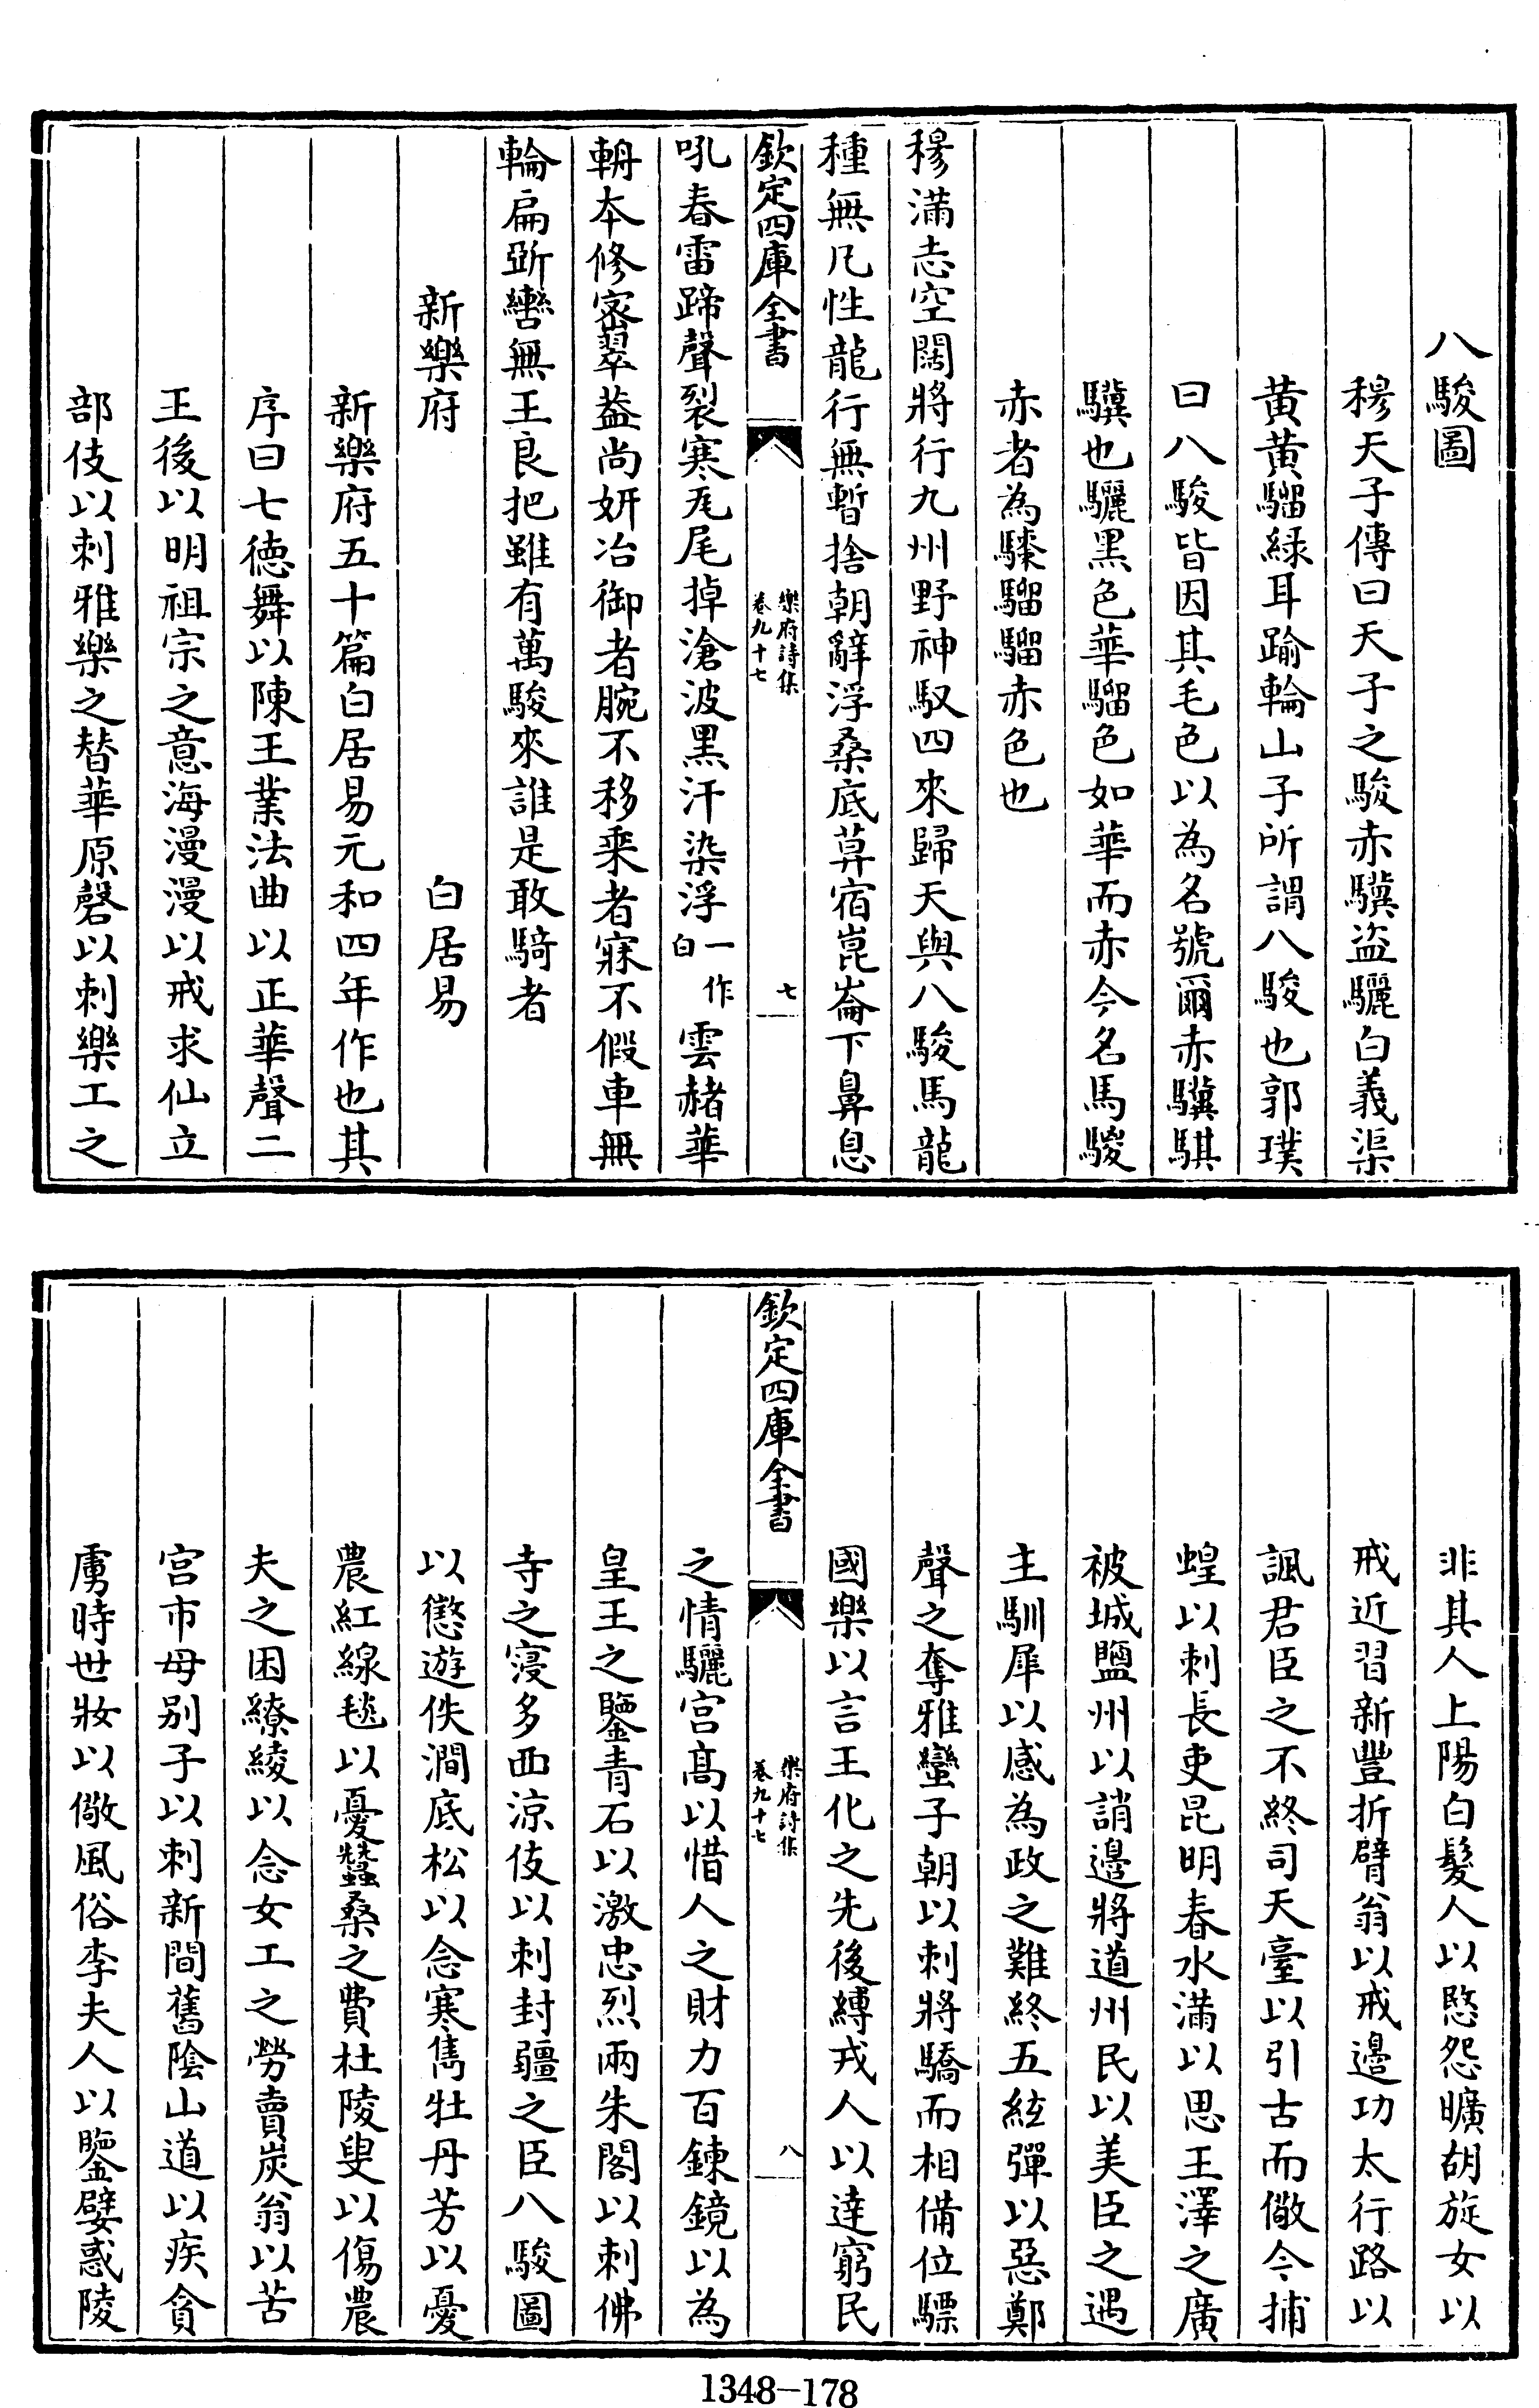 八駿圖
穆天子傳曰天子之駿赤驥盗驪白義渠
黄黄騮緑耳踰輪山子所謂八駿也郭璞
曰八駿皆因其毛色以為名號爾赤驥騏
驥也驪黑色華騮色如華而赤今名馬騣
赤者為騬騮騮赤色也
穆滿志空闊將行九州野神馭四來歸天與八駿馬龍
種無凡性龍行無暫捨朝辭浮桑底暮宿崑崙下鼻息
欽定四庫全書
樂府詩集
卷九十七
七
吼春雷蹄聲裂寒瓦尾掉滄波黑汗染浮一作白雲赭華
輈本修密翠葢尚妍冶御者腕不移乘者寐不假車無
輪扁斵轡無王良把雖有萬駿來誰是敢騎者
新樂府 白居易
新樂府五十篇白居易元和四年作也其
序曰七徳舞以陳王業法曲以正華聲二
王後以明祖宗之意海漫漫以戒求仙立
部伎以刺雅樂之替華原磬以刺樂工之
非其人上陽白髮人以愍怨曠胡旋女以
戒近習新豐折臂翁以戒邉功太行路以
諷君臣之不終司天臺以引古而儆今捕
蝗以刺長吏昆明春水滿以思王澤之廣
被城鹽州以誚邉將道州民以美臣之遇
主馴犀以感為政之難終五絃彈以惡鄭
聲之奪雅蠻子朝以刺將驕而相備位驃
國樂以言王化之先後縛戎人以達窮民
欽定四庫全書
樂府詩集
卷九十七
八
之情驪宫髙以惜人之財力百鍊鏡以為
皇王之鑒青石以激忠烈兩朱閣以刺佛
寺之寖多西凉伎以刺封疆之臣八駿圖
以懲遊佚澗底松以念寒儁牡丹芳以憂
農紅線毯以憂蠶桑之費杜陵叟以傷農
夫之困繚綾以念女工之勞賣炭翁以苦
宫市母别子以刺新間舊隂山道以疾貪
虜時世妝以儆風俗李夫人以鑒嬖惑陵
1348-178